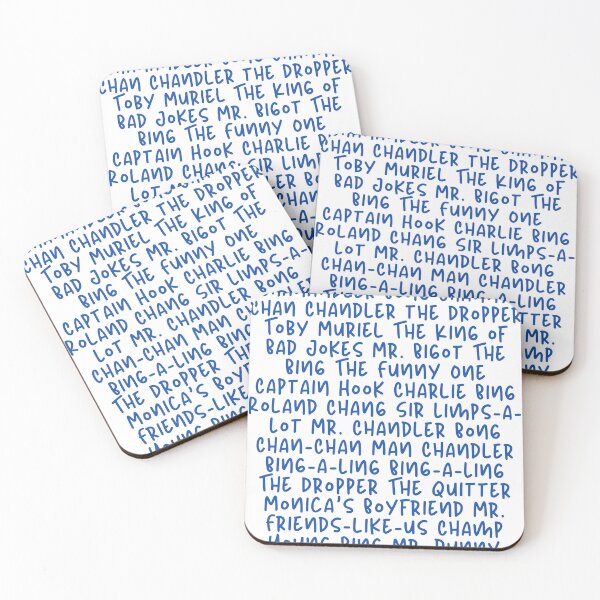 CHAN CHANDLER THE DROPPER
TOBY MURIEL THE KING OF
BAD JOKES MR. BIGOT THE
BING THE FUNNY ONE
CAPTAIN HOOK CHARLIE
ROLAND CHANG SIR LIMPS
LOT
CHAN CHANDLER THE DROPPER
TOBY MURIEL THE KING OF
BAD JOKES MR. BIGOT THE
BING THE FUNNY ONE
CAPTAIN HOOK CHARLIE BING
ROLAND CHANG SIR LIMPS-A-
LOT MR. CHANDLER BONG
CHAN-CHAN MAN CHANDLER
BING-A-LING BING-A-LING
MR.
CHAMP
CHAN CHANDLER THE DROPPER
TOBY MURIEL THE KING OF
BAD JOKES MR. BIGOT THE
BING THE FUNNY ONE
CAPTAIN HOOK CHARLIE BING
ROLAND CHANG SIR LIMPS-A-
LOT MR. CHANDLER BONG
CHAN-CHAN MAN
BING-A-LING BING
THE DROPPER THE
MONICA'S
FRIENDS-LIKE-US
CHAN CHANDLER THE DROPPER
TOBY MURIEL THE KING OF
BAD JOKES MR. BIGOT THE
BING THE FUNNY ONE
CAPTAIN HOOK CHARLIE BING
ROLAND CHANG SIR LIMPS-A-
LOT MR. CHANDLER BONG
CHAN-CHAN MAN CHANDLER
BING-A-LING BING-A-LING
THE DROPPER THE QUITTER
MONICA'S BOYFRIEND MR.
FRIENDS-LIKE-US CHAMP